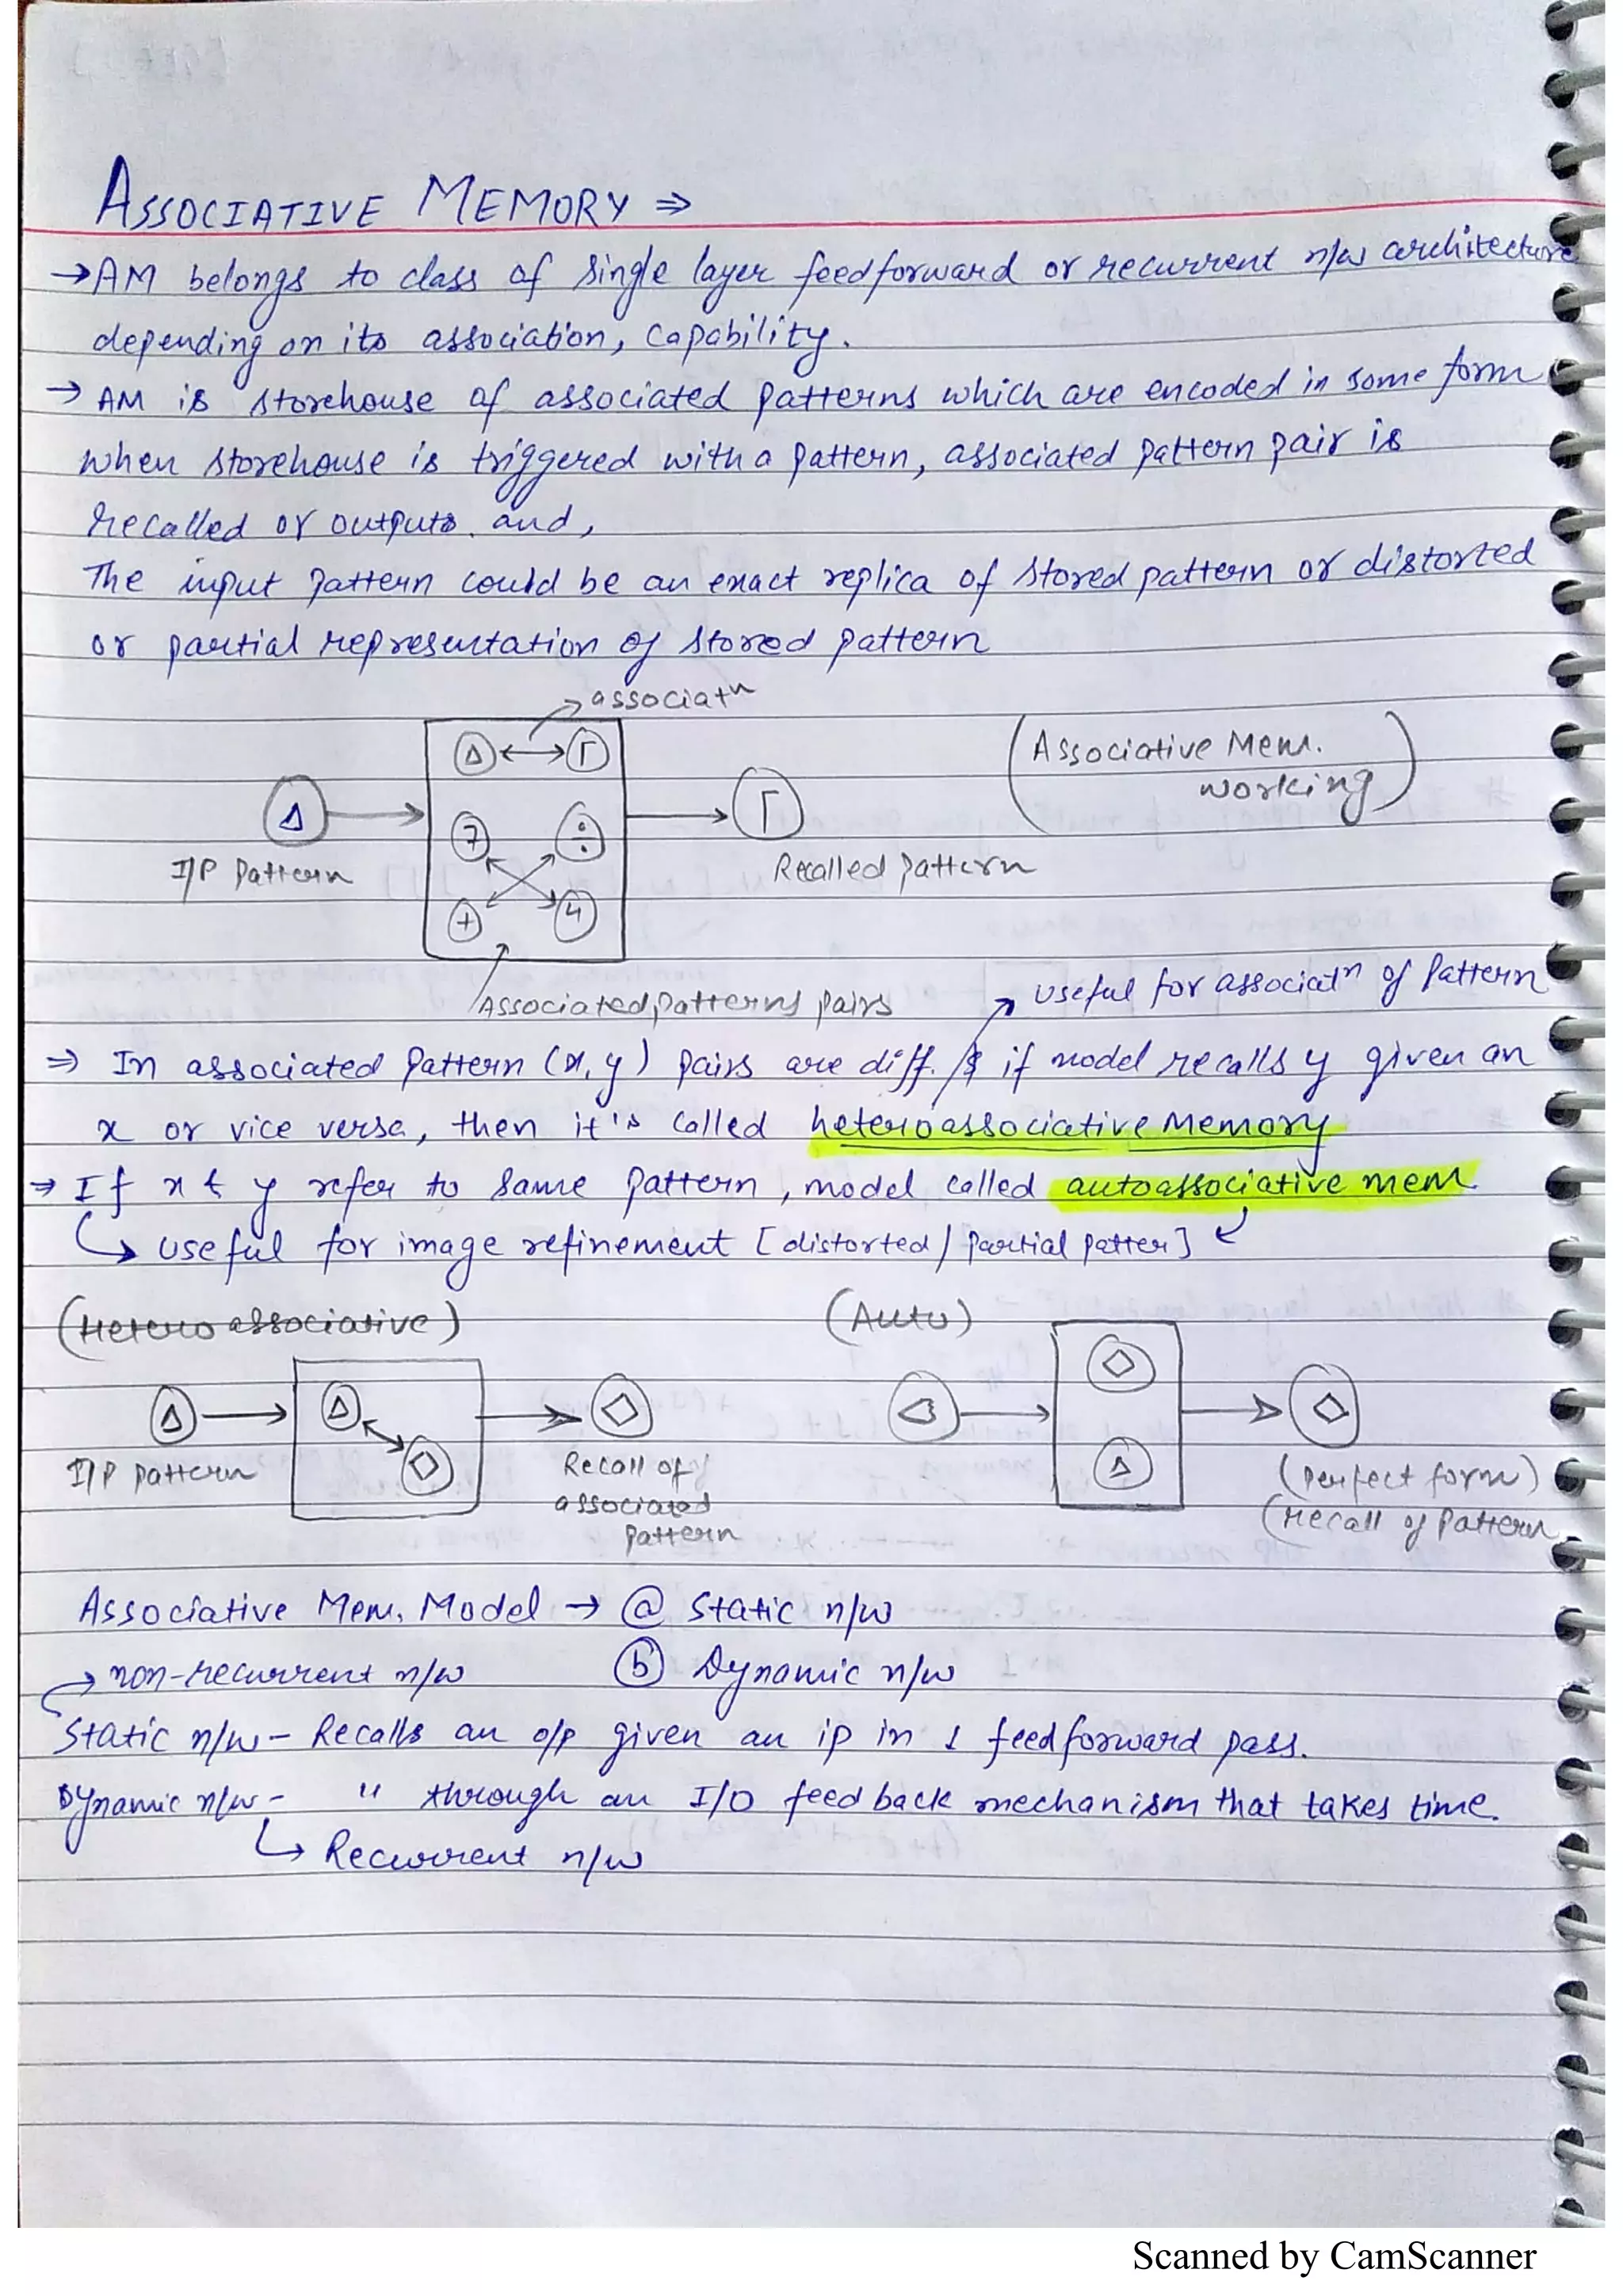 ASSOCIATIVE MEMORY ⇒
→ AM belongs to class of single layer feedforward or recurrent n/w architecture
depending on its association, capability.
→ AM is storehouse of associated patterns which are encoded in some form
when storehouse is triggered with a pattern, associated pattern pair is
recalled or outputs. and,
The input pattern could be an exact replica of stored pattern or distorted
or partial representation of stored pattern
→ associatn
Δ ↔ Γ
(Associative Mem.
working)
Δ
7 ÷
Γ
I/P Pattern
Recalled pattern
+ 4
Associated patterns pairs
→ useful for associatn of pattern
⇒ In associated pattern (x, y) pairs are diff. & if model recalls y given an
x or vice versa, then it's called heteroassociative Memory
→ If x & y refer to same pattern, model called autoassociative mem.
↳ useful for image refinement [distorted / partial patter]
(Hetero associative)
(Auto)
I/P pattern
Recall of
associated
pattern
(perfect form)
(recall of pattern
Associative Mem. Model → ⓐ Static n/w
→ non-recurrent n/w ⓑ Dynamic n/w
Static n/w - Recalls an o/p given an ip in 1 feedforward pass.
Dynamic n/w - " through an I/O feedback mechanism that takes time.
↳ Recurrent n/w
Scanned by CamScanner